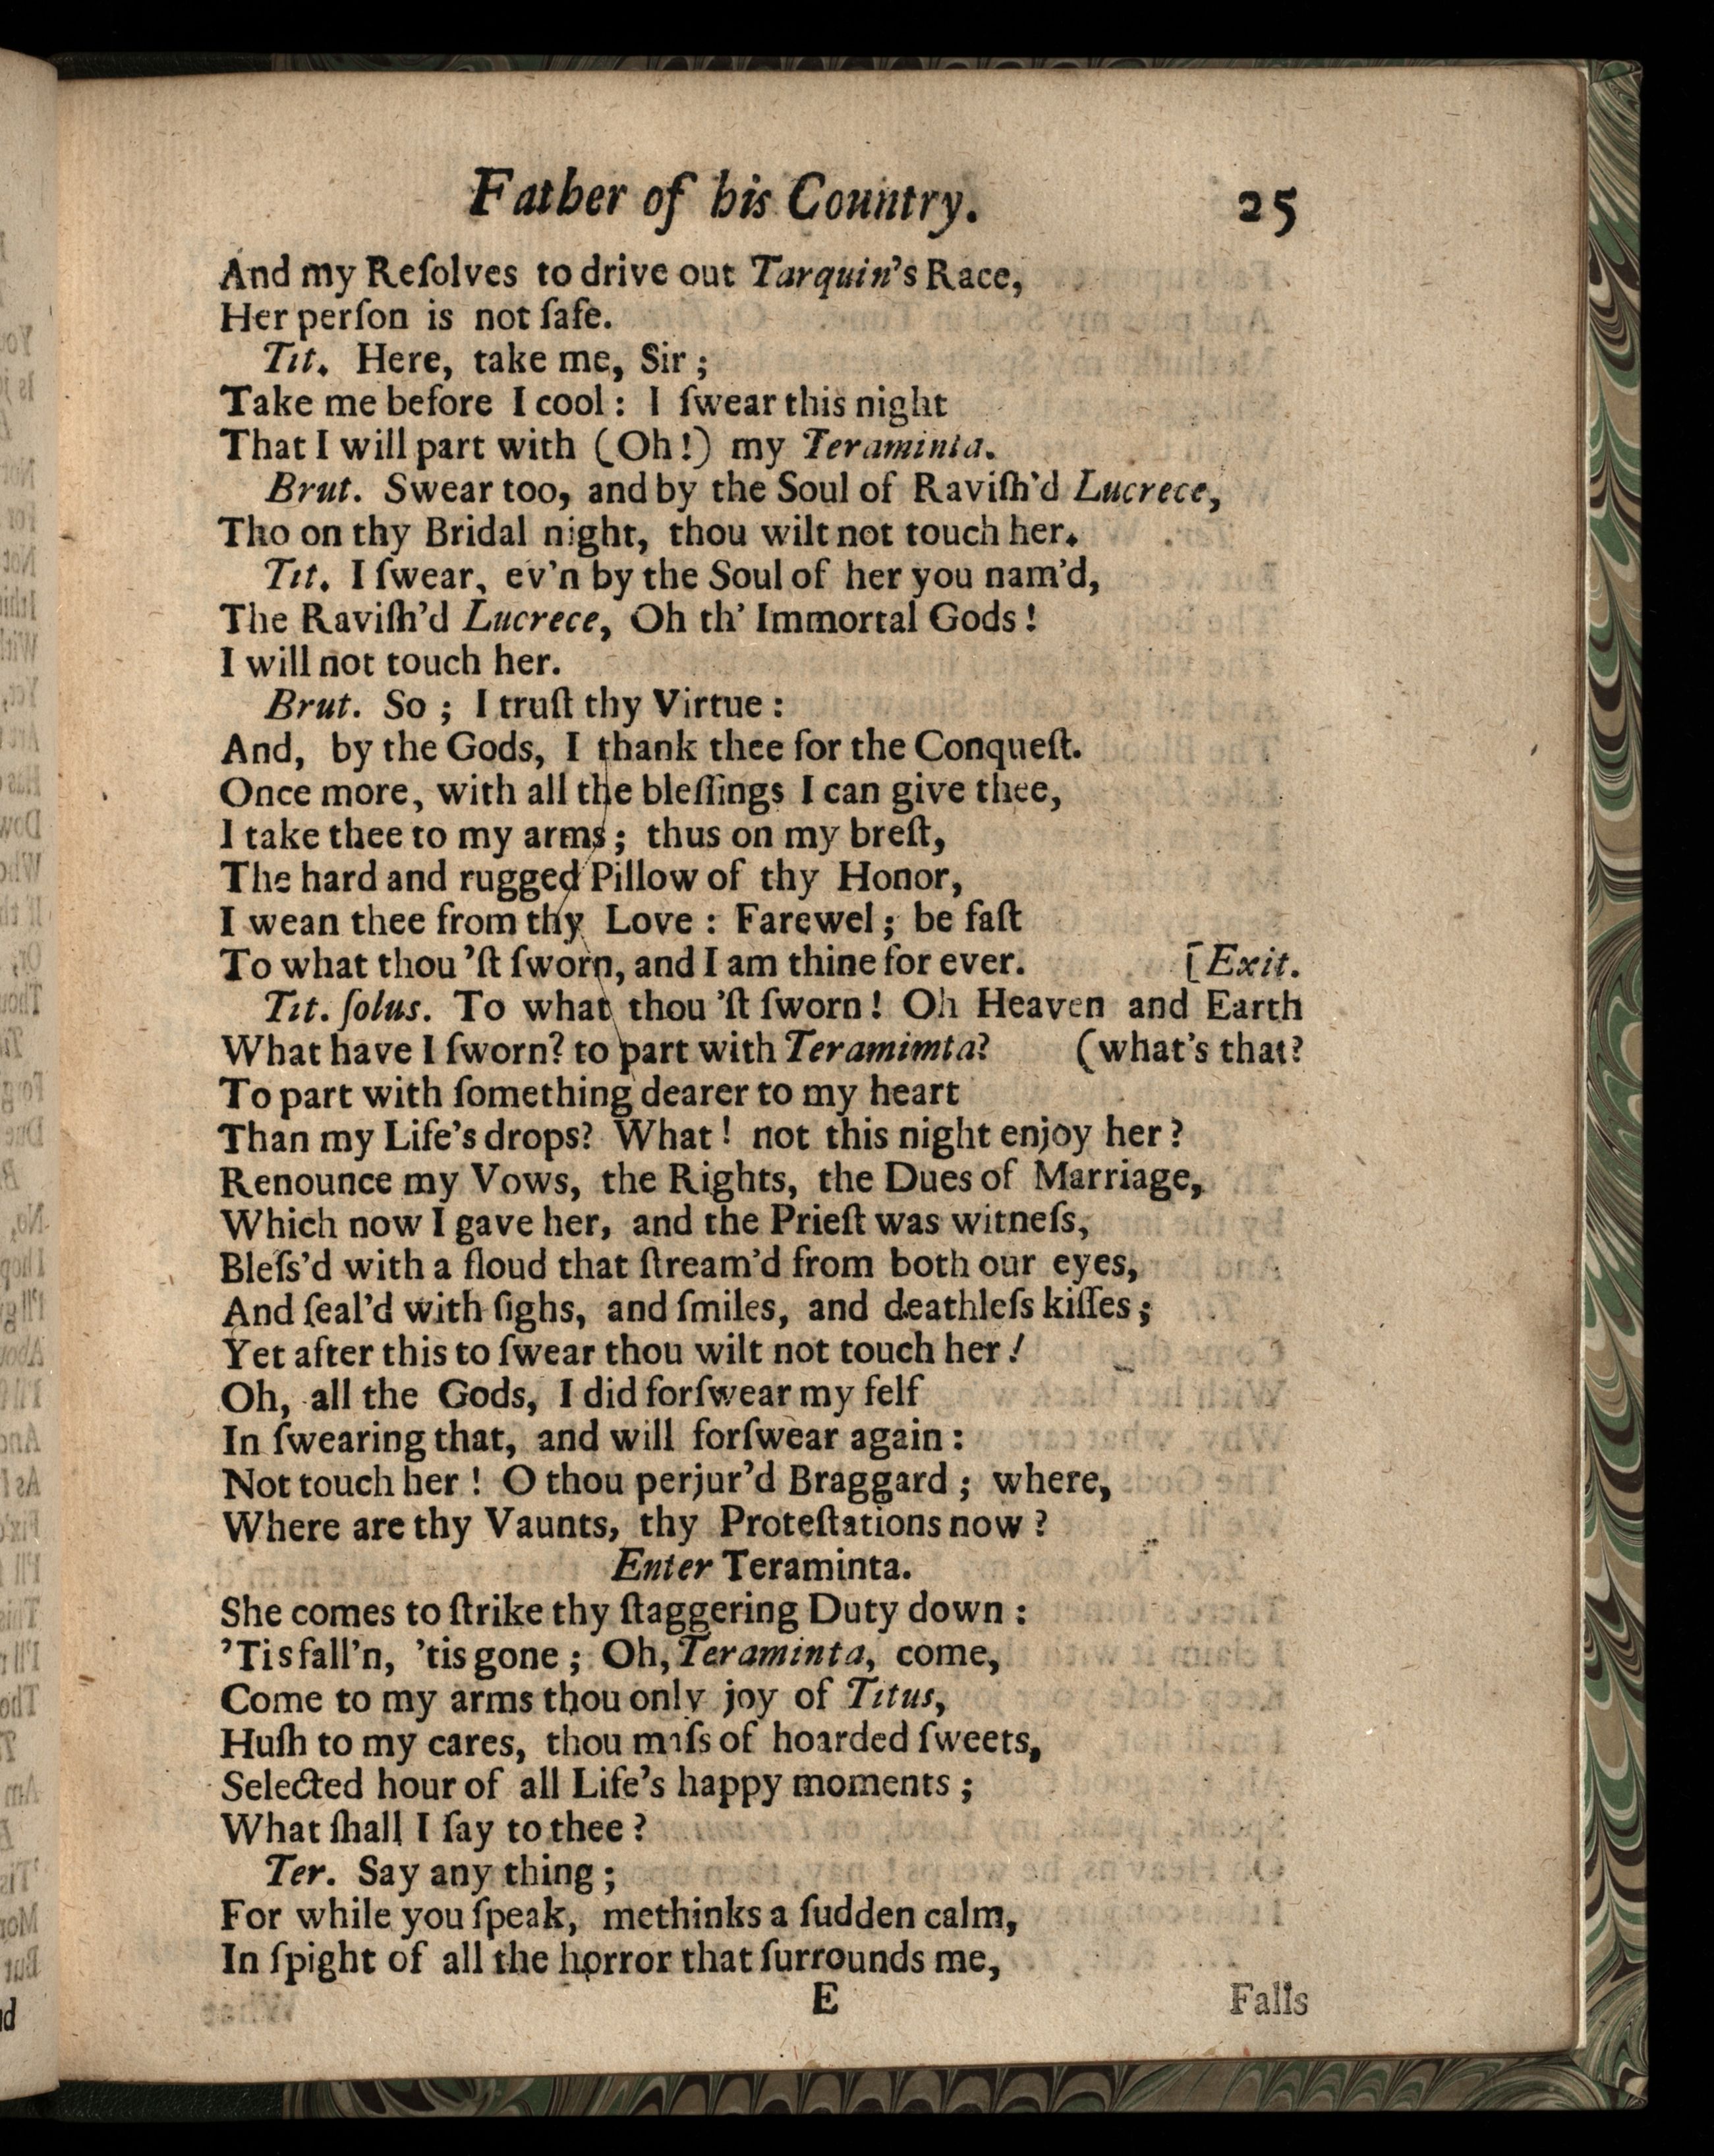 Father of his Country. 25
And my Reſolves to drive out Tarquin's Race,
Her perſon is not ſafe.
Tit. Here, take me, Sir ;
Take me before I cool : I ſwear this night
That I will part with (Oh!) my Teraminta.
Brut. Swear too, and by the Soul of Raviſh'd Lucrece,
Tho on thy Bridal night, thou wilt not touch her.
Tit. I ſwear, ev'n by the Soul of her you nam'd,
The Raviſh'd Lucrece, Oh th' Immortal Gods !
I will not touch her.
Brut. So ; I truſt thy Virtue :
And, by the Gods, I thank thee for the Conqueſt.
Once more, with all the bleſſings I can give thee,
I take thee to my arms ; thus on my breſt,
The hard and rugged Pillow of thy Honor,
I wean thee from thy Love : Farewel ; be faſt
To what thou 'ſt ſworn, and I am thine for ever. [Exit.
Tit. ſolus. To what thou 'ſt ſworn ! Oh Heaven and Earth
What have I ſworn? to part with Teramimta? (what's that?
To part with ſomething dearer to my heart
Than my Life's drops? What ! not this night enjoy her ?
Renounce my Vows, the Rights, the Dues of Marriage,
Which now I gave her, and the Prieſt was witneſs,
Bleſs'd with a floud that ſtream'd from both our eyes,
And ſeal'd with ſighs, and ſmiles, and deathleſs kiſſes ;
Yet after this to ſwear thou wilt not touch her !
Oh, all the Gods, I did forſwear my ſelf
In ſwearing that, and will forſwear again :
Not touch her ! O thou perjur'd Braggard ; where,
Where are thy Vaunts, thy Proteſtations now ?
Enter Teraminta.
She comes to ſtrike thy ſtaggering Duty down :
'Tis fall'n, 'tis gone ; Oh, Teraminta, come,
Come to my arms thou only joy of Titus,
Huſh to my cares, thou maſs of hoarded ſweets,
Selected hour of all Life's happy moments ;
What ſhall I ſay to thee ?
Ter. Say any thing ;
For while you ſpeak, methinks a ſudden calm,
In ſpight of all the horror that ſurrounds me,
E Falls